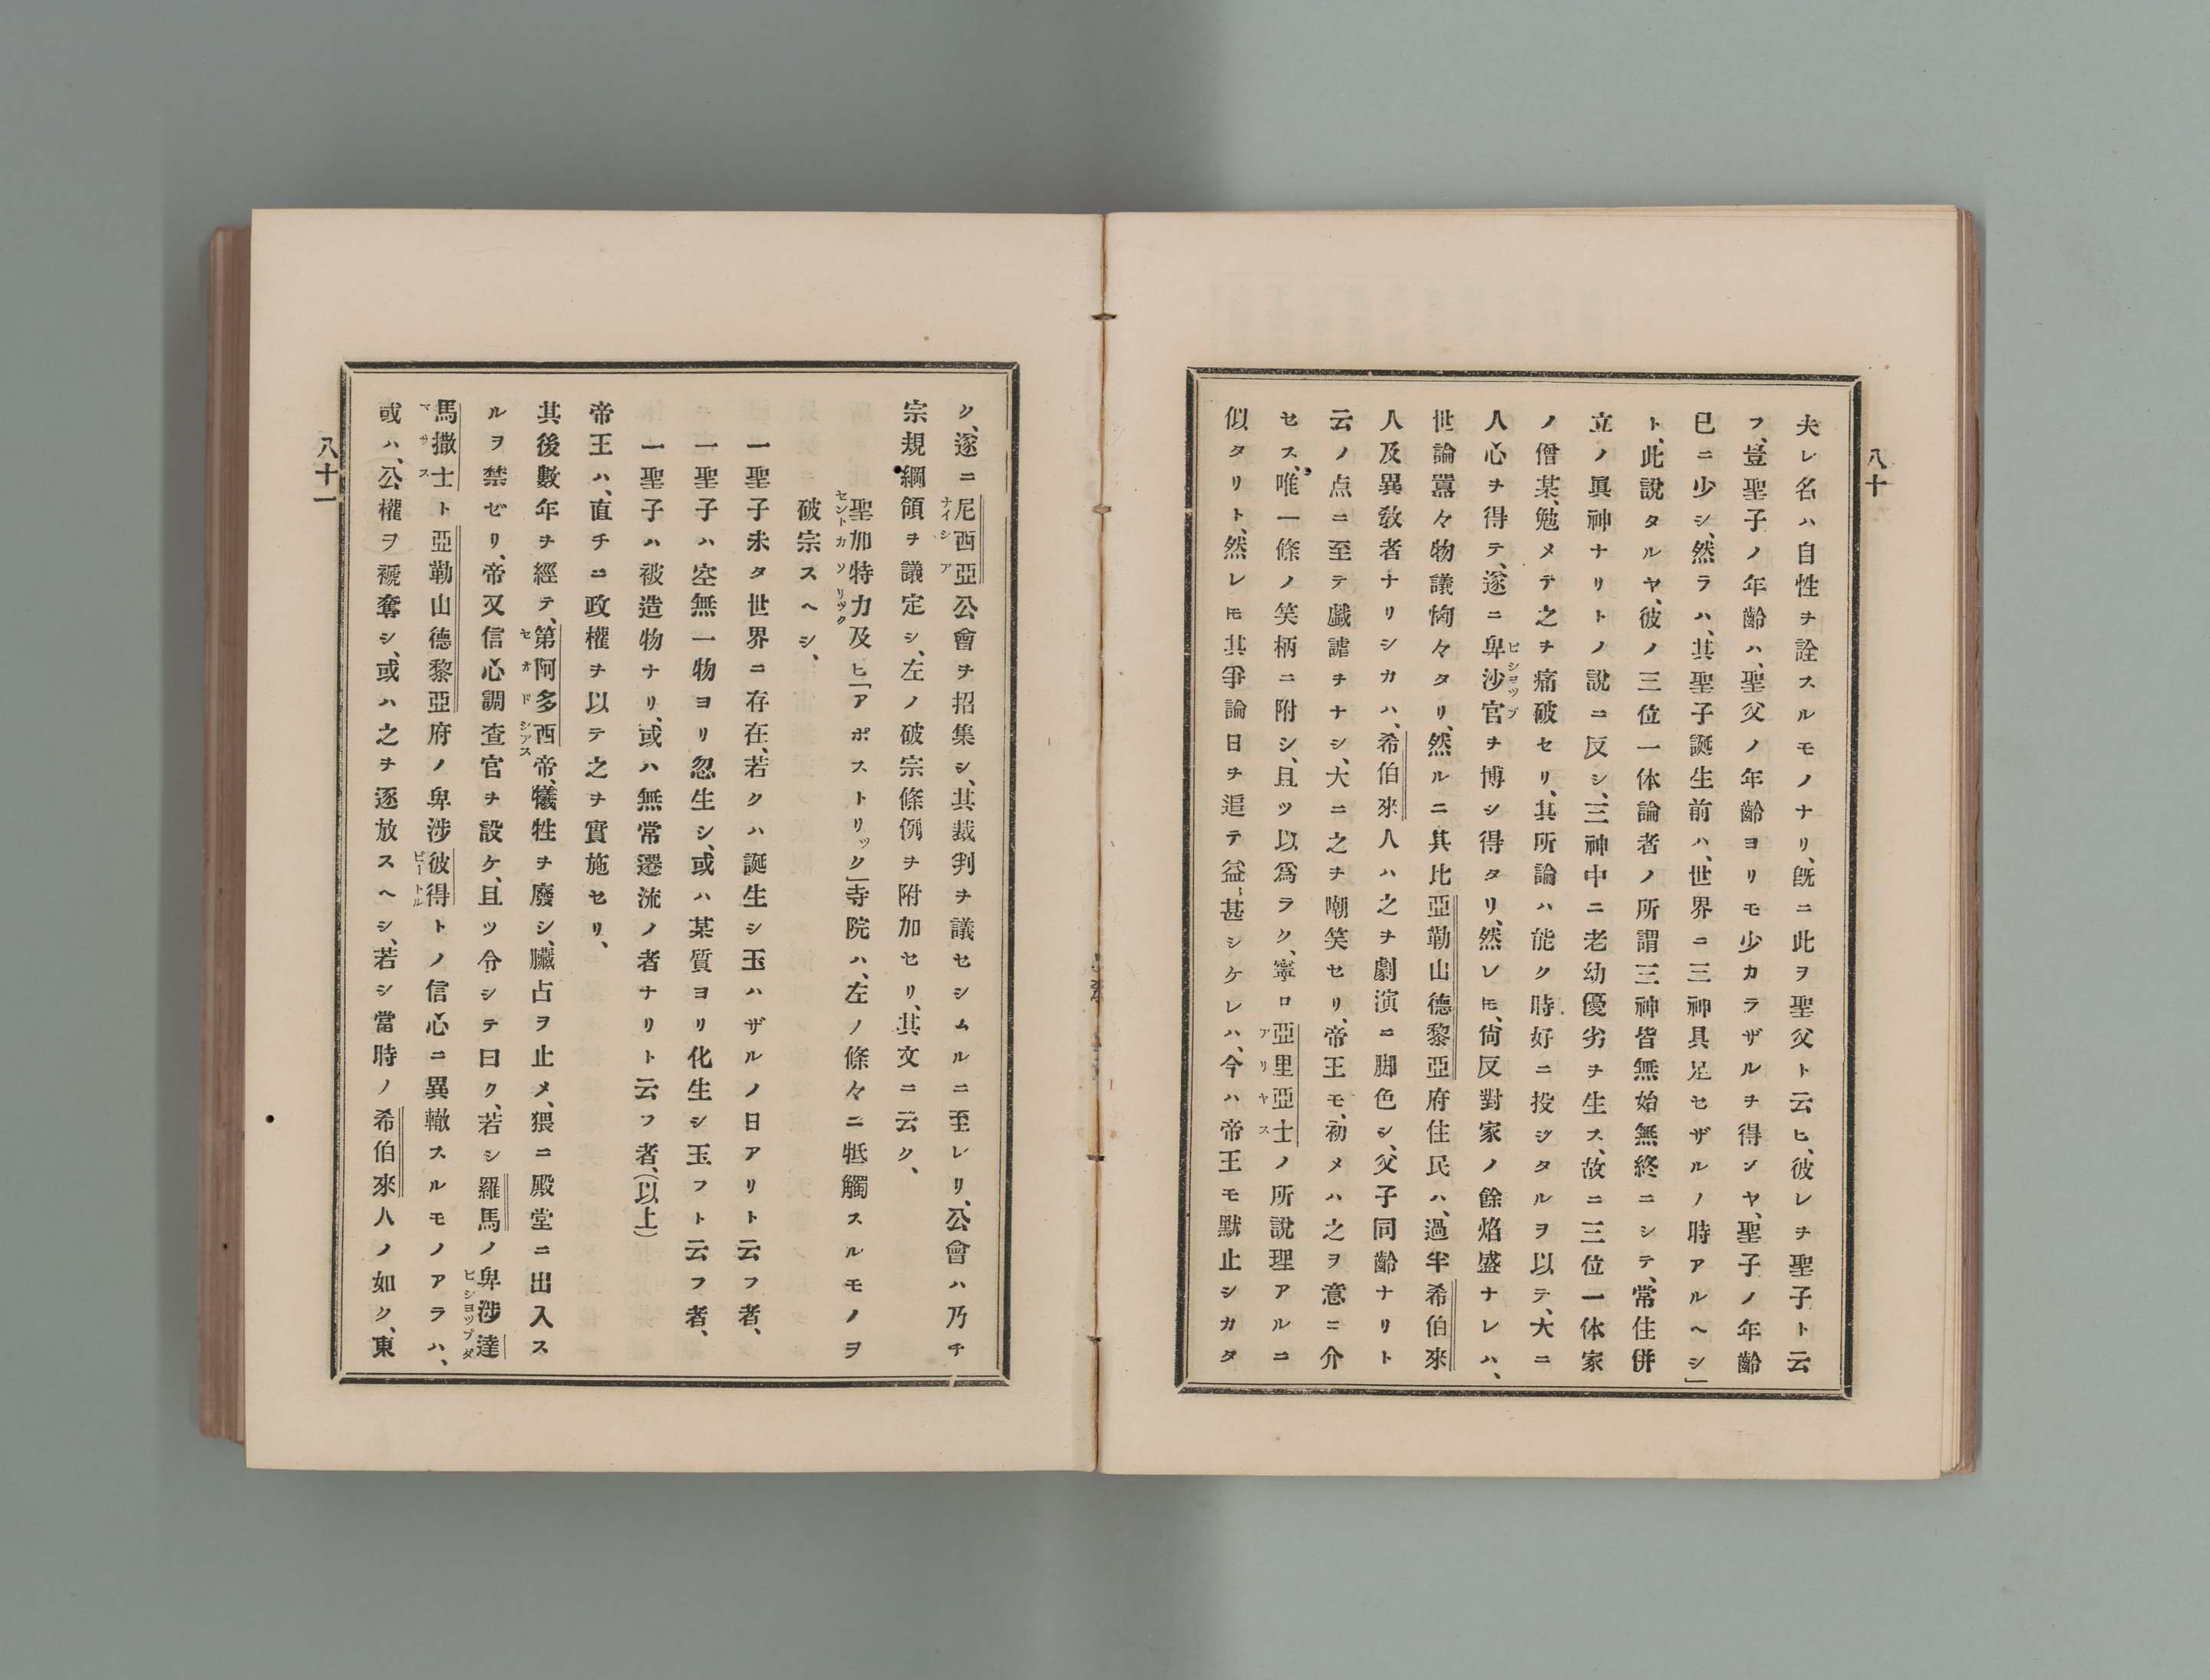 八十
夫レ名ハ自性ヲ詮スルモノナリ、既ニ此ヲ聖父ト云ヒ、彼レヲ聖子ト云
フ、豈聖子ノ年齡ハ、聖父ノ年齡ヨリモ少カラザルヲ得ンヤ、聖子ノ年齡
已ニ少シ、然ラハ、其聖子誕生前ハ、世界ニ三神具足セザルノ時アルヘシ」
ト、此說タルヤ、彼ノ三位一体論者ノ所謂三神皆無始無終ニシテ、常住併
立ノ眞神ナリトノ說ニ反シ、三神中ニ老幼優劣ヲ生ス、故ニ三位一体家
ノ僧某、勉メテ之ヲ痛破セリ、其所論ハ能ク時好ニ投ジタルヲ以テ、大ニ
人心ヲ得テ、遂ニ卑沙官ヲ博シ得タリ、然レ𪜈、尙反對家ノ餘焰盛ナレハ、
ビシヨツプ
世論囂々物議恟々タリ、然ルニ其比亞勒山德黎亞府住民ハ、過半希伯來
人及異敎者ナリシカハ、希伯來人ハ之ヲ劇演ニ脚色シ、父子同齡ナリト
云ノ点ニ至テ戲謔ヲナシ、大ニ之ヲ嘲笑セリ、帝王モ、初メハ之ヲ意ニ介
セス、唯一條ノ笑柄ニ附シ、且ツ以爲ラク、寧ロ亞里亞士ノ所說理アルニ
アリヤス
似タリト、然レ𪜈其爭論日ヲ追テ益〻甚シケレハ、今ハ帝王モ默止シカタ
ク、遂ニ尼西亞公會ヲ招集シ、其裁判ヲ議セシムルニ至レリ、公會ハ乃チ
ナイシア
宗規綱領ヲ議定シ、左ノ破宗條例ヲ附加セリ、其文ニ云ク、
聖加特力及ヒ「アポストリック」寺院ハ、左ノ條々ニ牴觸スルモノヲ
セントカソリツク
破宗スヘシ、
一聖子未タ世界ニ存在、若クハ誕生シ玉ハザルノ日アリト云フ者、
一聖子ハ空無一物ヨリ忽生シ、或ハ某質ヨリ化生シ玉フト云フ者、
一聖子ハ被造物ナリ、或ハ無常遷流ノ者ナリト云フ者、(以上)
帝王ハ、直チニ政權ヲ以テ之ヲ實施セリ、
其後數年ヲ經テ、第阿多西帝、犧牲ヲ廢シ、臟占ヲ止メ、猥ニ殿堂ニ出入ス
セオドシアス
ルヲ禁ゼリ、帝又信心調查官ヲ設ケ、且ツ令シテ曰ク、若シ羅馬ノ卑涉達
ビシヨツプダ
馬撒士ト亞勒山德黎亞府ノ卑涉彼得トノ信心ニ異轍スルモノアラハ、
マサス
ピートル
或ハ、公權ヲ褫奪シ、或ハ之ヲ逐放スヘシ、若シ當時ノ希伯來人ノ如ク、東
八十一